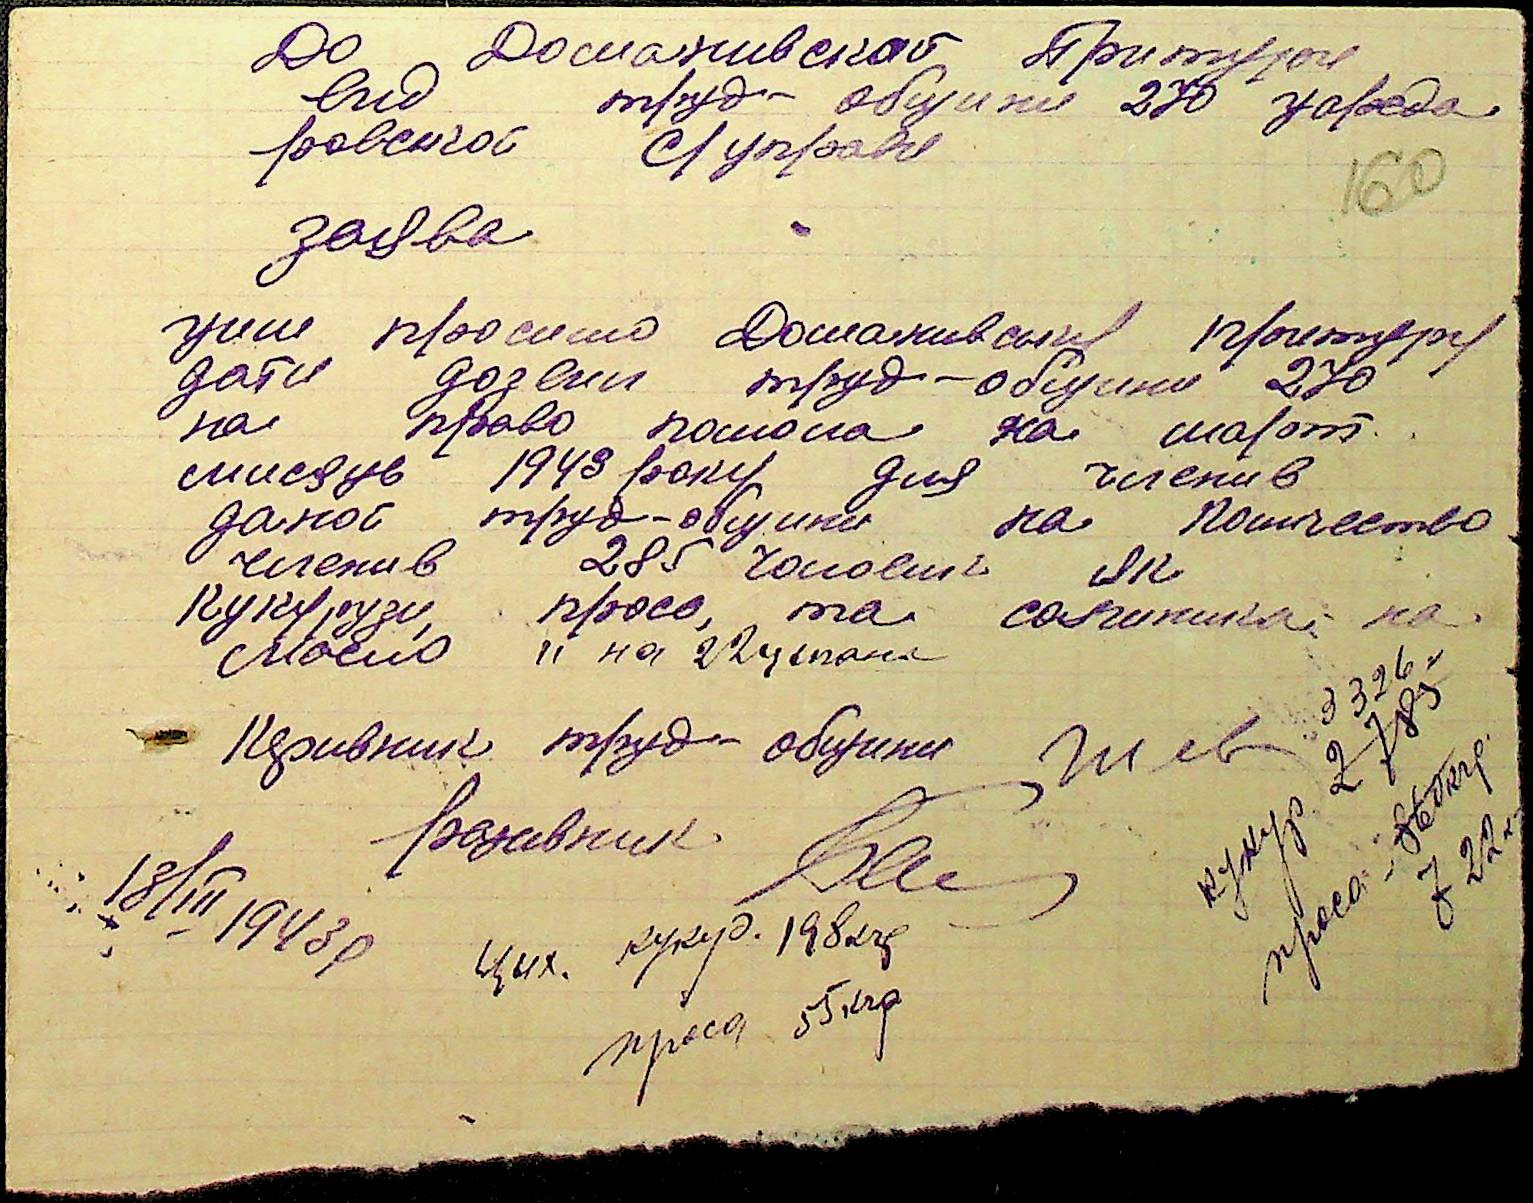 До Доманивской Притуры
вид труд-общини 270 цареда
ровской С/управи
160
заява
цим просимо Доманивську притуру
дати дозвил труд-общини 270
на право помола на март
мисяць 1943 року для членив
даной труд-общини на количество
членив 285 чоловик як
Кукурузи, проса, та сояшника на
Масло " на 22 чолов
Керивник труд-общини Шев
рахивник
18/III 1943р
3326
кукур 2785
проса
722
Цих. кукур. 198 кгр
проса 55 кгр